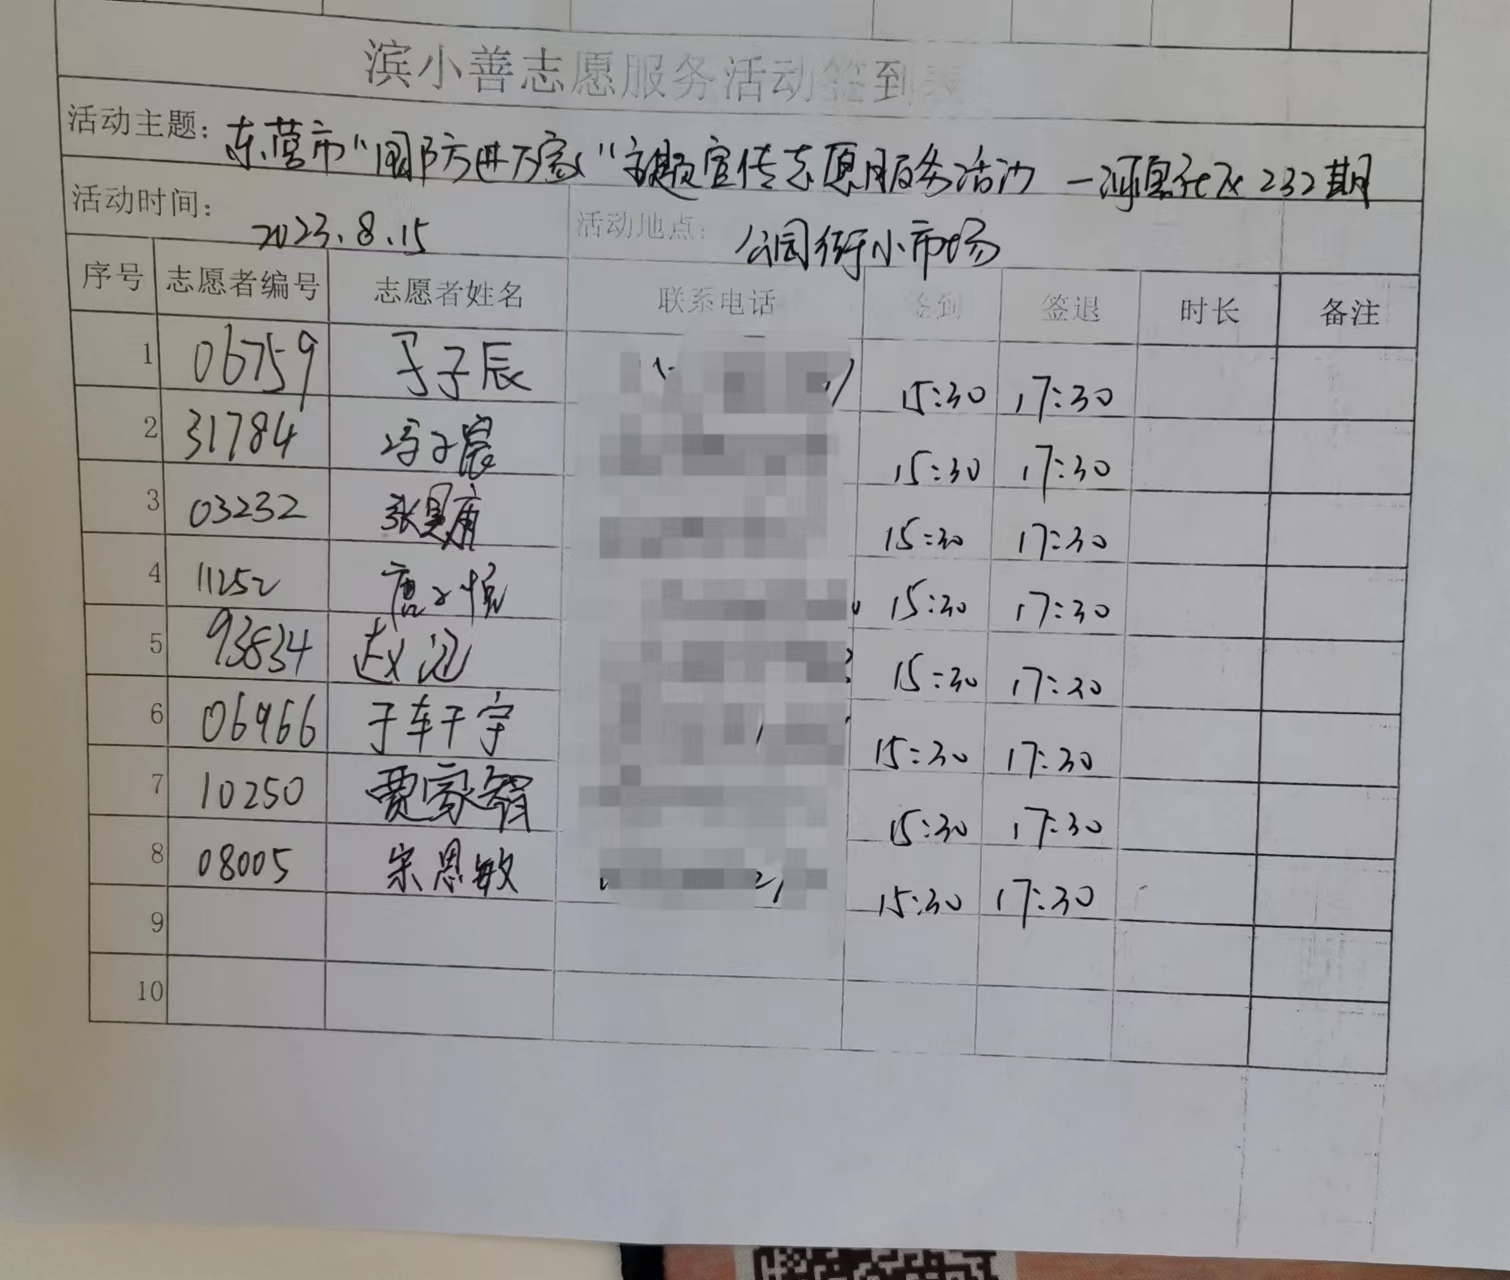 滨小善志愿服务活动签到表
活动主题: 东营市"国防进万家"主题宣传志愿服务活动 一河息社区232期
活动时间: 2023.8.15 活动地点: 公园街小市场
序号 志愿者编号 志愿者姓名 联系电话 签到 签退 时长 备注
1 06759 于子辰 15:30 17:30
2 31784 冯子宸 15:30 17:30
3 03232 张昊 15:30 17:30
4 11252 唐子悦 15:30 17:30
5 93834 赵 15:30 17:30
6 06966 于车干宇 15:30 17:30
7 10250 贾家智 15:30 17:30
8 08005 宋恩敏 15:30 17:30
9
10